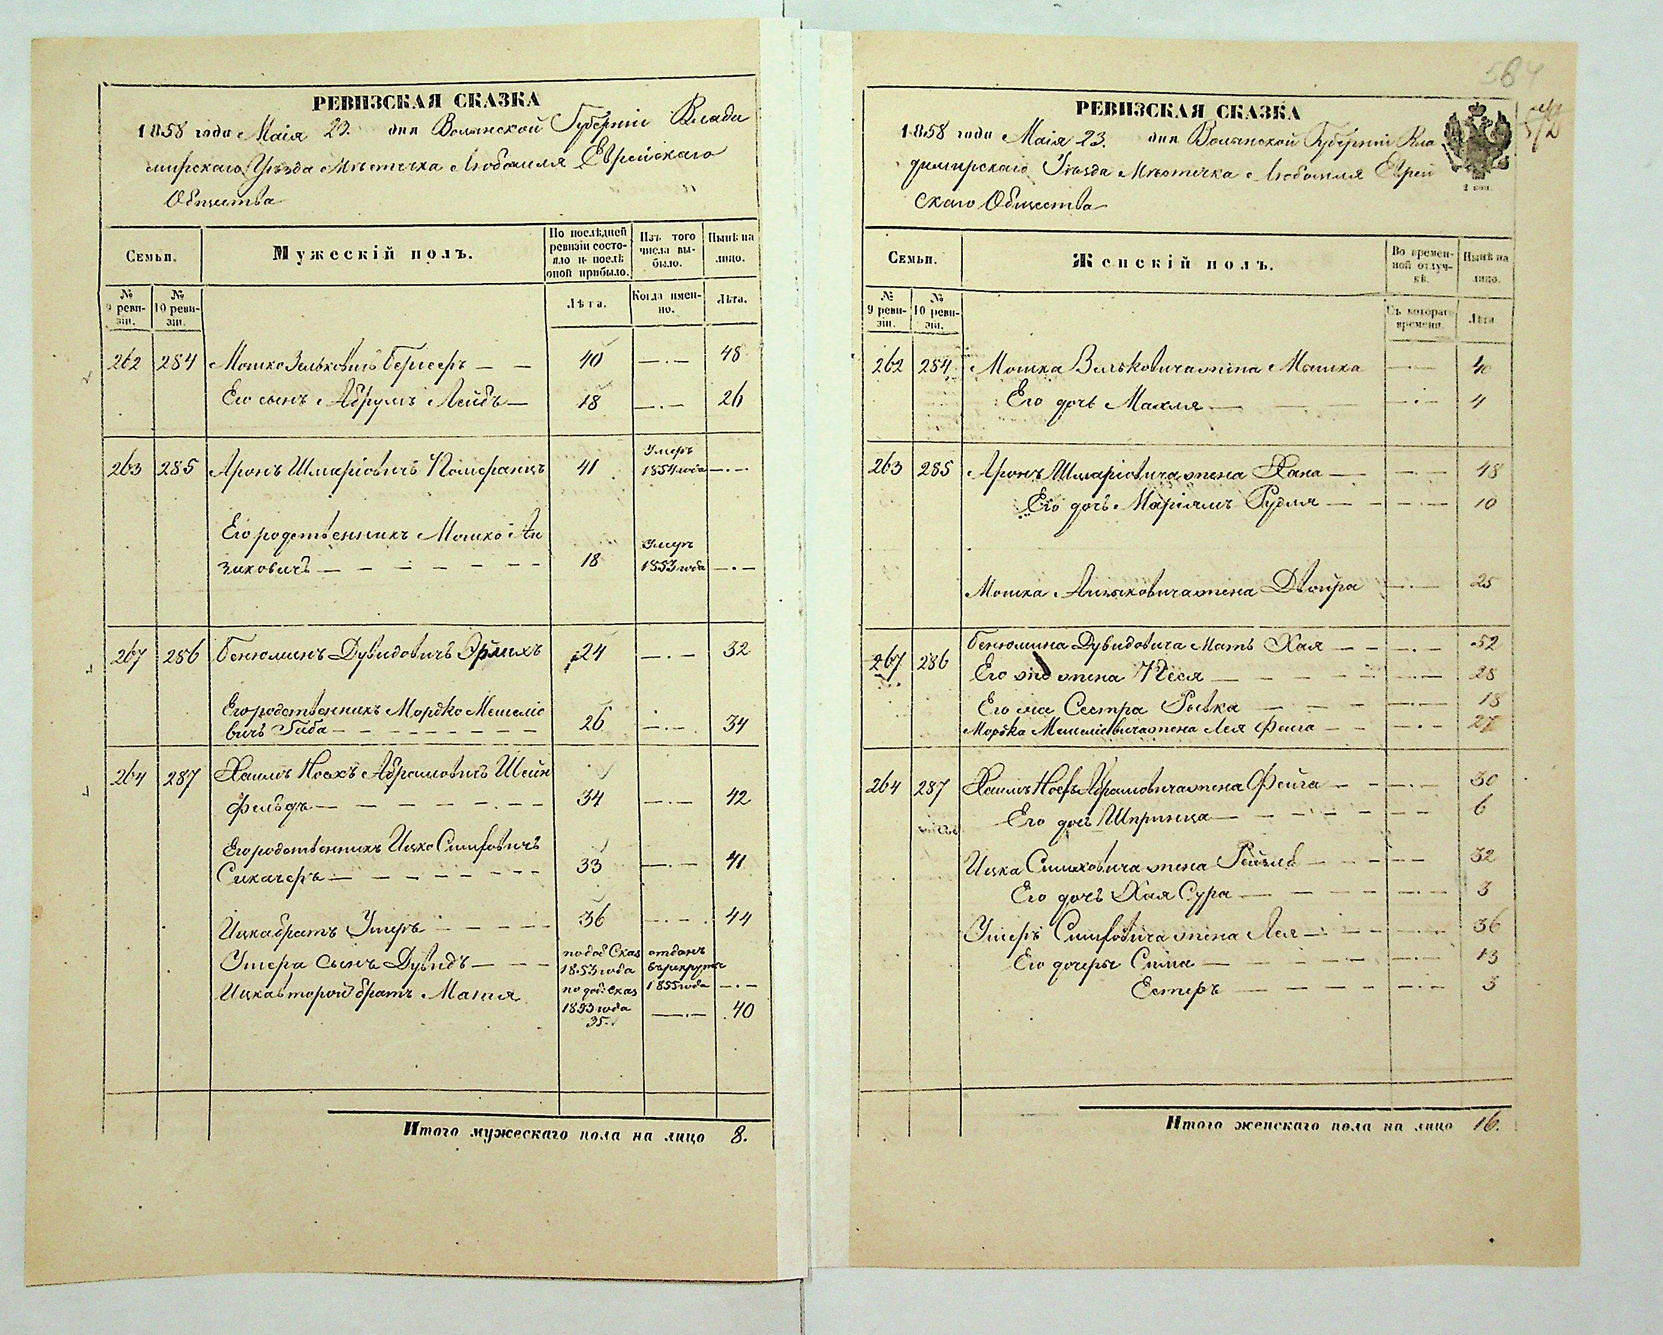 РЕВИЗСКАЯ СКАЗКА
1858 года Маія 23. дня Волынской Губерніи Влади
мирскаго Уѣзда Мѣстечка Любомля Еврейскаго
Общества
Семьи.
Мужескій полъ.
По послѣдней ревизіи состояло и послѣ оной прибыло.
Изъ того числа выбыло.
Нынѣ на лицо.
№ 9 ревизіи.
№ 10 ревизіи.
Лѣта.
Когда именно.
Лѣта.
262 284 Мошко Зельковичъ Бергеръ — — 40 —·— 48
Его сынъ Абрумъ Лейбъ — 18 —·— 26
263 285 Аронъ Шмаріовичъ Померанцъ 41 Умеръ 1854 года —·—
Его родственникъ Мошко Аи
зиковичъ — — — — 18 Умеръ 1853 года —·—
267 286 Бенюминъ Дувидовичъ Эрлихъ 24 —·— 32
Его родственникъ Мордко Мешеліо
вичъ Гиба — — — — 26 —·— 34
264 287 Хаимъ Носхъ Абрамовичъ Шейн
фельдъ — — — — 34 —·— 42
Его родственникъ Ицко Симховичъ
Сикачеръ — — — — 33 —·— 41
Ицка братъ Ушеръ — — — 36 —·— 44
Ушера сынъ Дувидъ — — — по доб. Сказ 1853 года отданъ въ рекруты 1855 года —·—
Ицка второй братъ Матля по доб. Сказ 1853 года 35 —·— 40
Итого мужескаго пола на лицо 8.
584
РЕВИЗСКАЯ СКАЗКА
1858 года Маія 23. дня Волынской Губерніи Вла
димирскаго Уѣзда Мѣстечка Любомля Еврей
скаго Общества
2 коп.
Семьи.
Женскій полъ.
Во временной отлучкѣ.
Нынѣ на лицо.
№ 9 ревизіи.
№ 10 ревизіи.
Съ котораго времени.
Лѣта.
262 284 Мошка Зельковича жена Машка —·— 40
Его дочь Махля — —·— 4
263 285 Аронъ Шмаріовича жена Хана — —·— 48
Его дочь Маріямъ Рудля — —·— 10
Мошка Аизиковича жена Двойра —·— 25
267 286 Бенюмина Дувидовича Мать Хая — —·— 52
Его жена Песя — — — —·— 28
Его Сестра Рывка — — — —·— 18
Мордка Мешеліовича жена Лея Фейга — —·— 27
264 287 Хаимъ Носхъ Абрамовича жена Фейга — —·— 30
Его дочь Шпринца — — — —·— 6
Ицка Симховича жена Рейзля — — —·— 32
Его дочь Хая Сура — — — —·— 3
Ушеръ Симховича жена Лея — — —·— 36
Его дочери Сима — — — —·— 13
Естеръ — — — —·— 5
Итого женскаго пола на лицо 16.